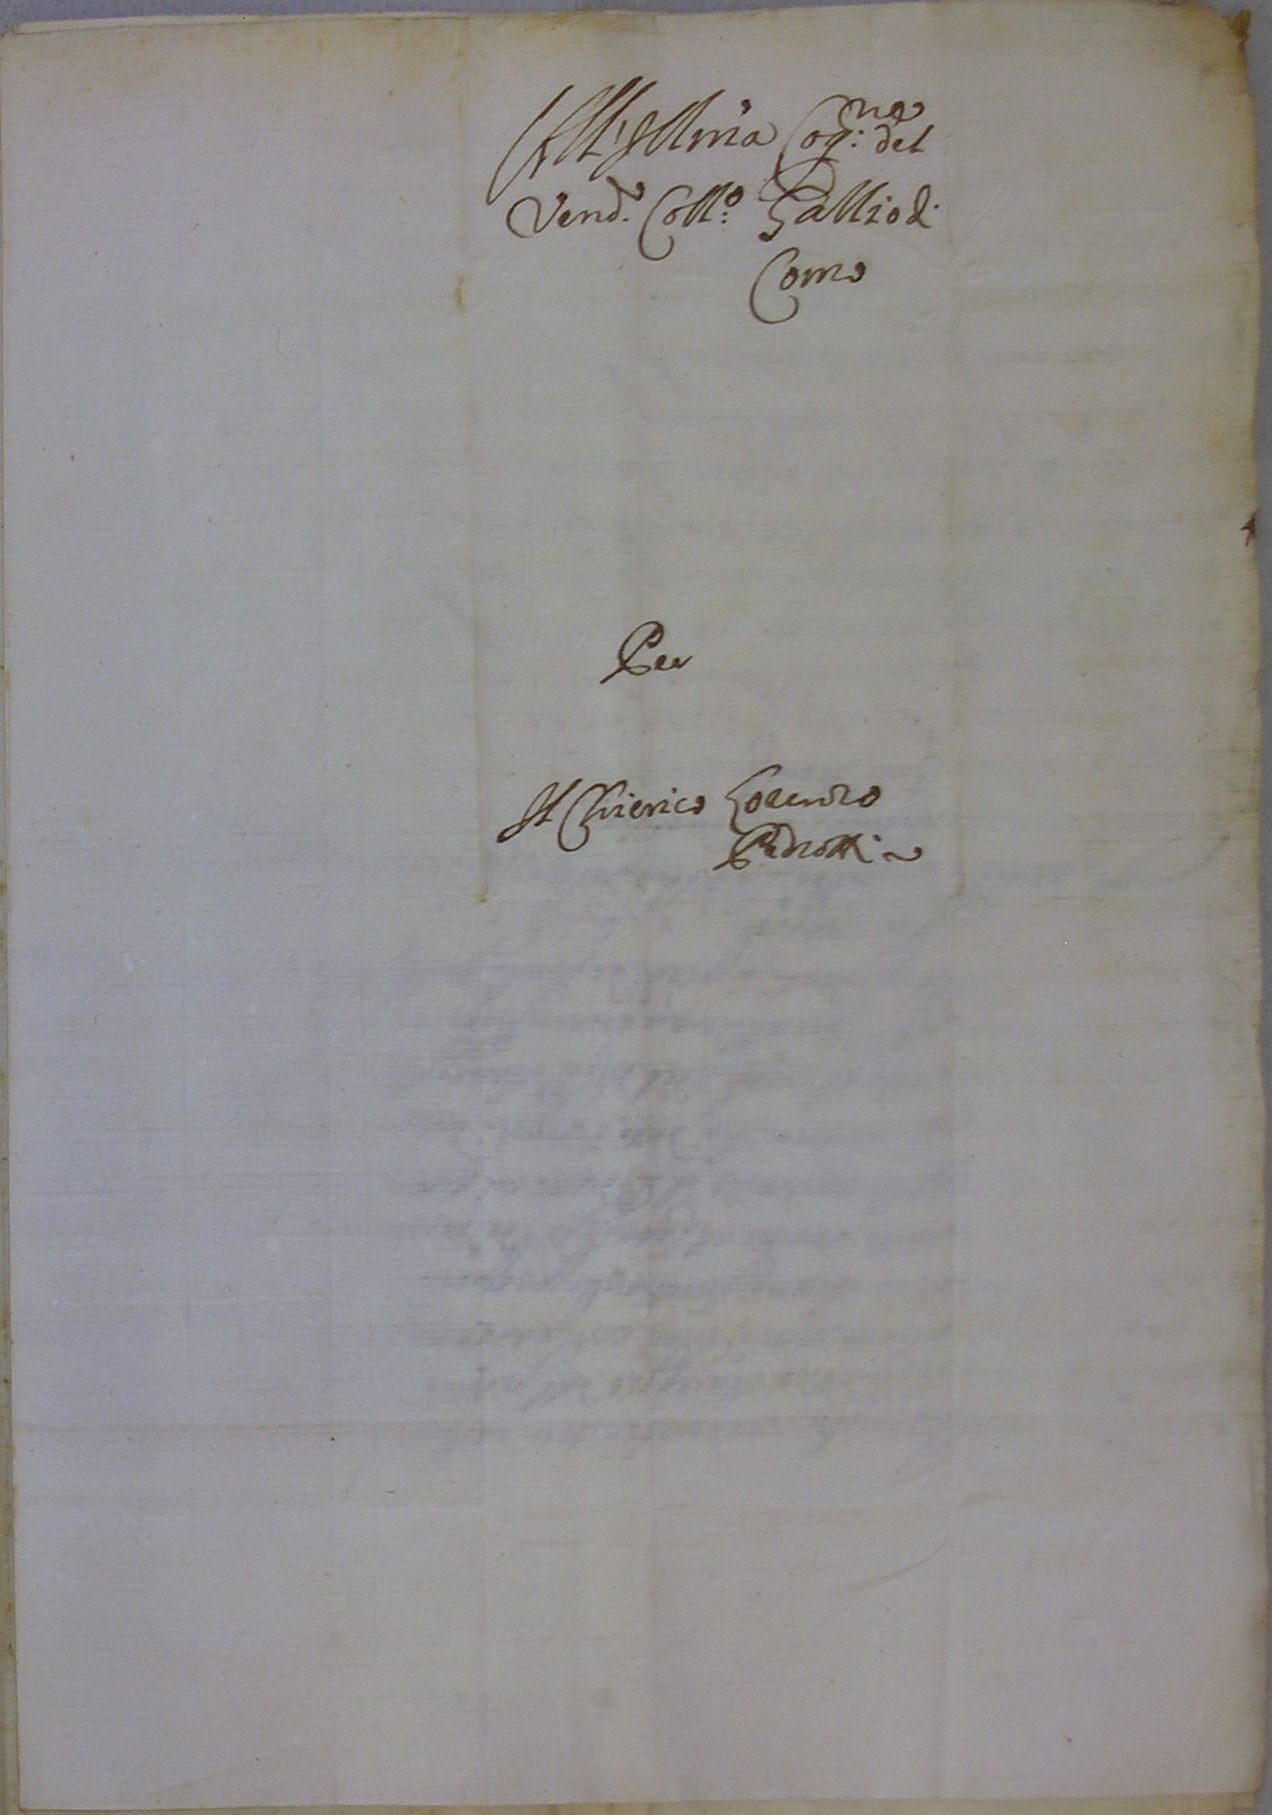 All' Illma Cog:ne del
Vend.e Coll:o Gallio di
Como
Per
Il Chierico Lorenzo
Pedrotti